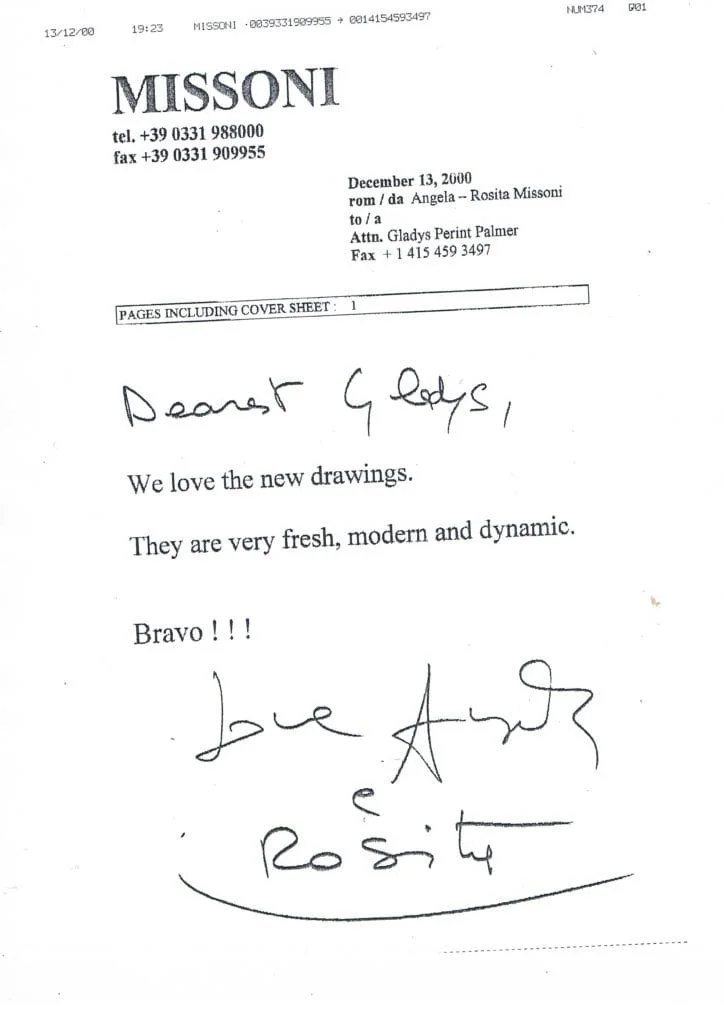 13/12/00 19:23 MISSONI ·0039331909955 → 0014154593497 NUM374 G01
MISSONI
tel. +39 0331 988000
fax +39 0331 909955
December 13, 2000
rom / da Angela – Rosita Missoni
to / a
Attn. Gladys Perint Palmer
Fax + 1 415 459 3497
PAGES INCLUDING COVER SHEET : 1
Dearest Gladys,
We love the new drawings.
They are very fresh, modern and dynamic.
Bravo ! ! !
Love Angela
e
Rosita